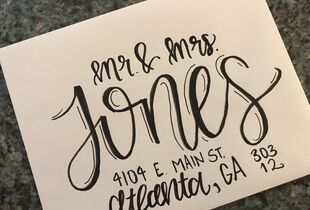 Mr. & Mrs.
Jones
4104 E. MAIN ST.
Atlanta, GA 303
12